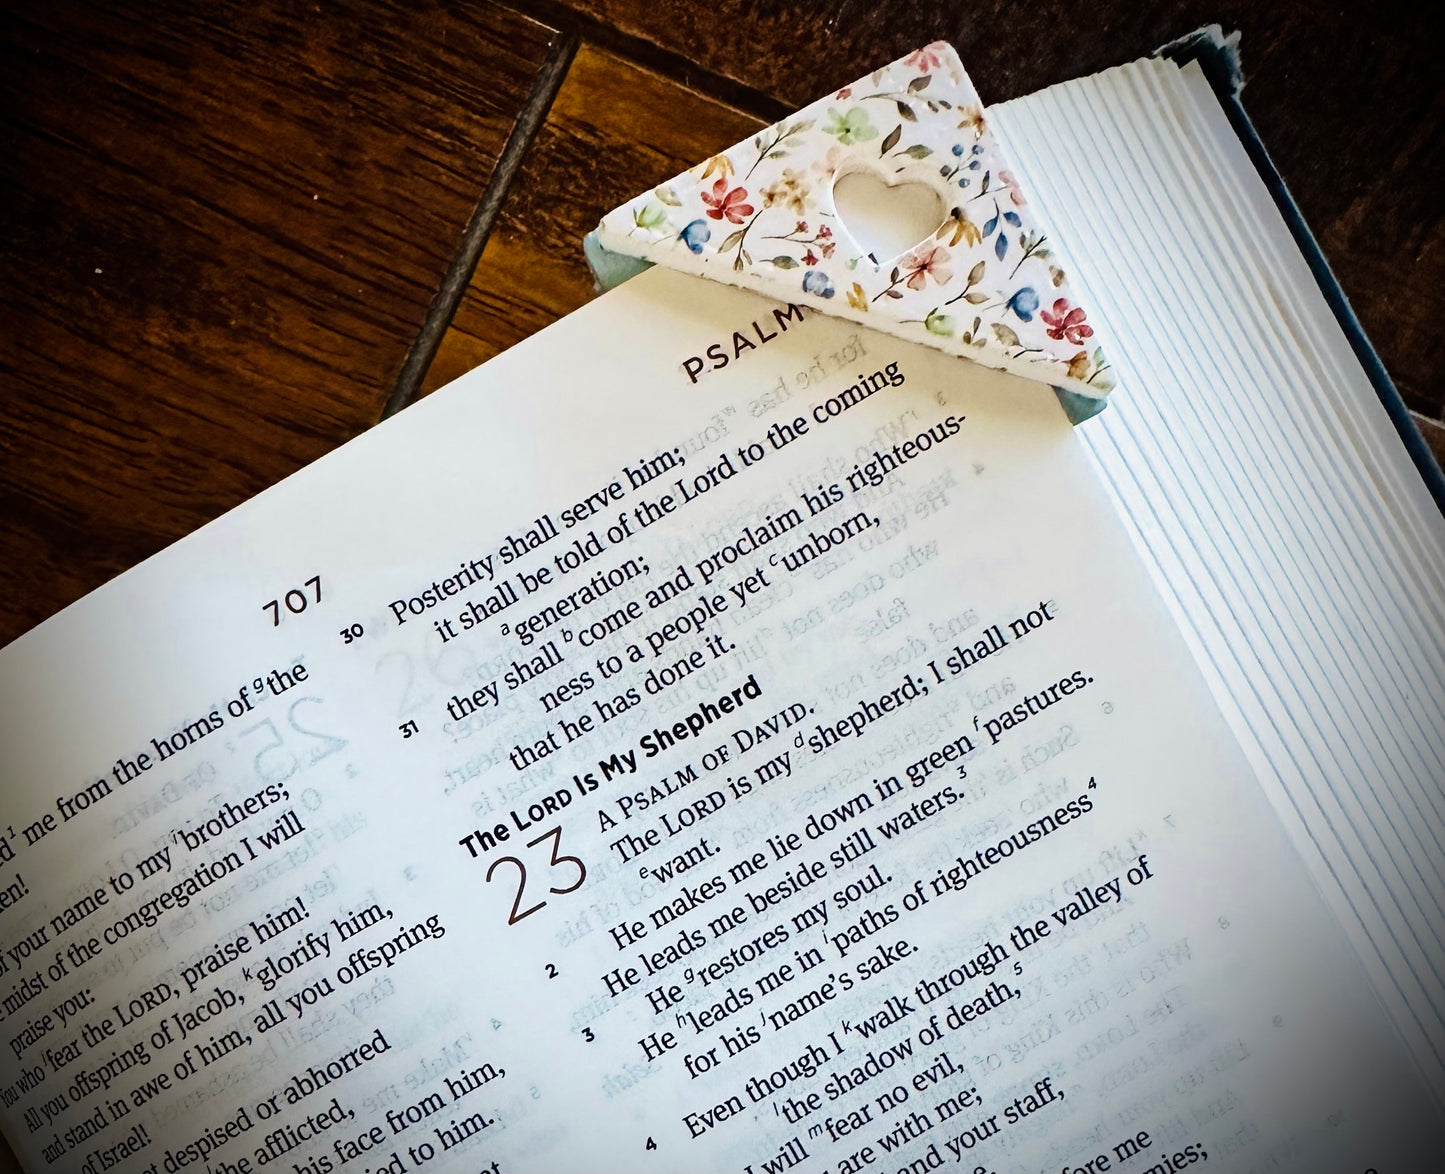 707
PSALM
ed¹ me from the horns of ᵍthe
en!
of your name to my ⁱbrothers;
midst of the congregation I will
praise you:
You who ʲfear the LORD, praise him!
All you offspring of Jacob, ᵏglorify him,
and stand in awe of him, all you offspring
of Israel!
not despised or abhorred
the afflicted,
his face from him,
ied to him.
30 Posterity shall serve him;
it shall be told of the Lord to the coming
ᵃgeneration;
31 they shall ᵇcome and proclaim his righteous-
ness to a people yet ᶜunborn,
that he has done it.
The LORD Is My Shepherd
23 A PSALM OF DAVID.
The LORD is my ᵈshepherd; I shall not
ᵉwant.
2 He makes me lie down in green ᶠpastures.
He leads me beside still waters.³
3 He ᵍrestores my soul.
He ʰleads me in ⁱpaths of righteousness⁴
for his ʲname's sake.
4 Even though I ᵏwalk through the valley of
ˡthe shadow of death,⁵
I will ᵐfear no evil,
are with me;
and your staff,
fore me
mies;